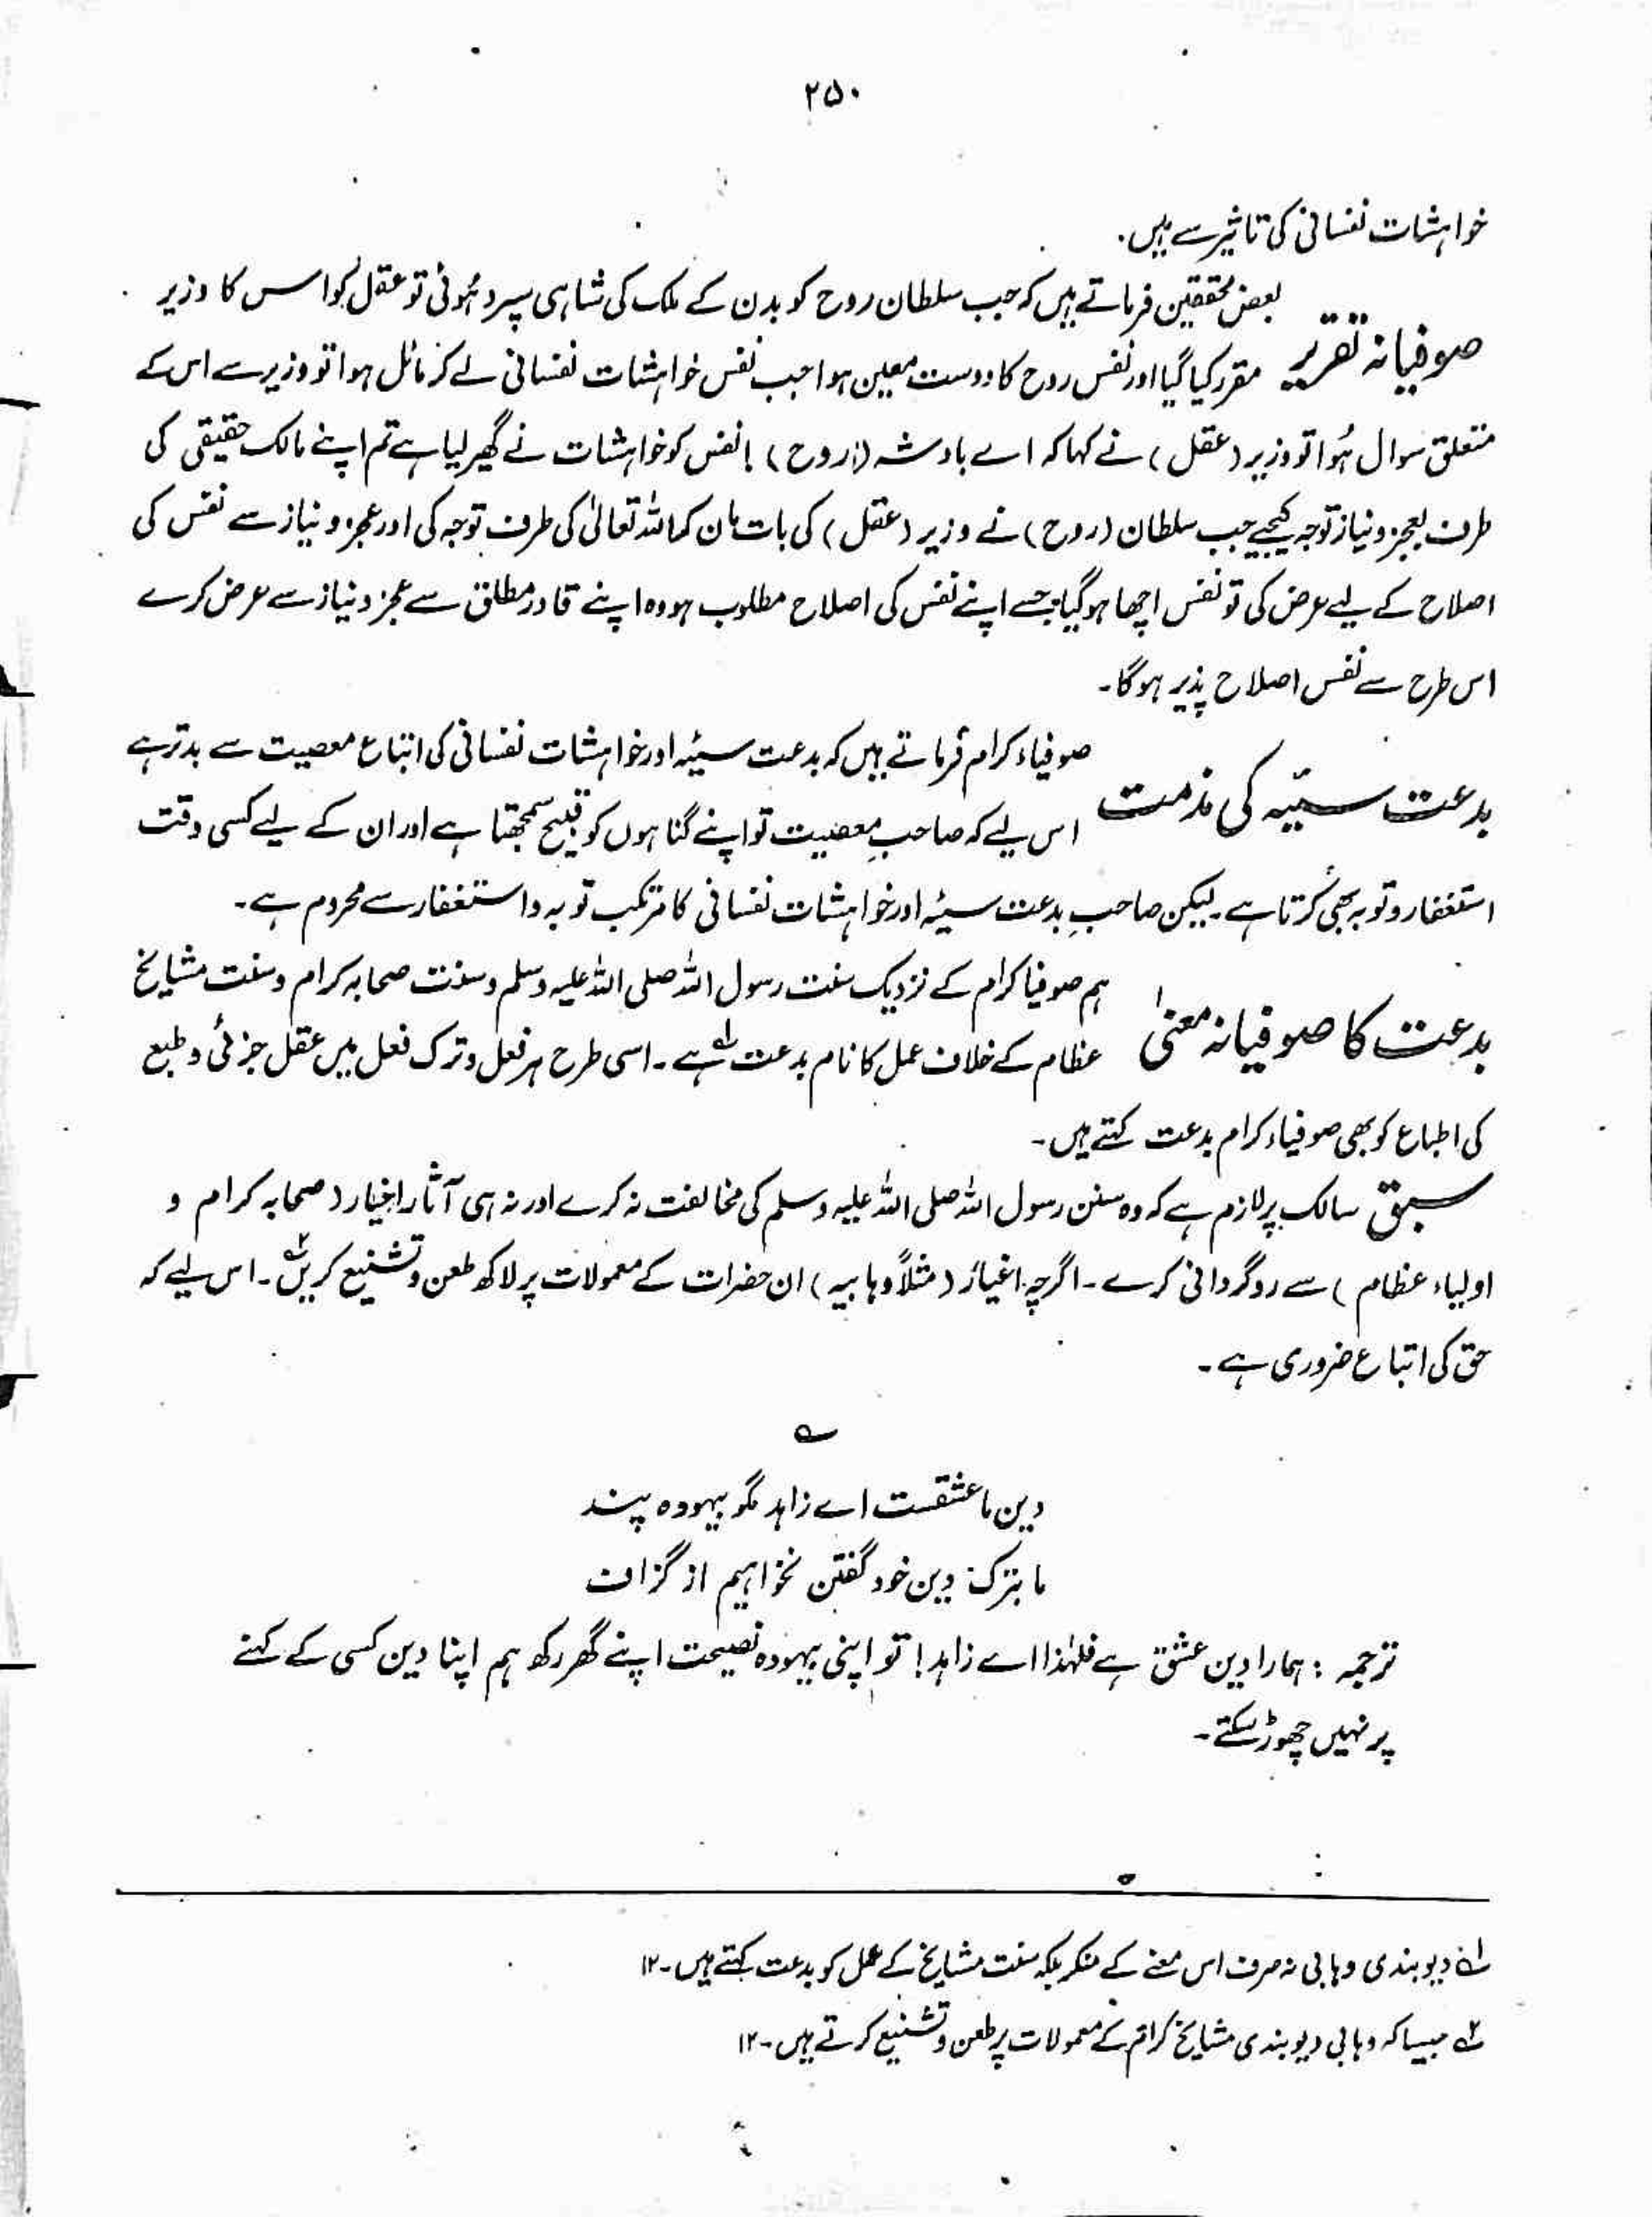 ۲۵۰
خواہشات نفسانی کی تاثیر سے ہیں۔
صوفیانہ تقریر بعض محققین فرماتے ہیں کہ جب سلطان روح کو بدن کے ملک کی شاہی سپرد ہُوئی تو عقل کو اس کا وزیر
مقرر کیا گیا اور نفس روح کا دوست معین ہوا جب نفس خواہشات نفسانی لے کر مائل ہوا تو وزیر سے اس کے
متعلق سوال ہُوا تو وزیر (عقل) نے کہا کہ اے بادشہ (روح)! نفس کو خواہشات نے گھیر لیا ہے تم اپنے مالک حقیقی کی
طرف بعجز و نیاز توجہ کیجیے جب سلطان (روح) نے وزیر (عقل) کی بات مان کر اللہ تعالیٰ کی طرف توجہ کی اور عجز و نیاز سے نفس کی
اصلاح کے لیے عرض کی تو نفس اچھا ہو گیا جسے اپنے نفس کی اصلاح مطلوب ہو وہ اپنے قادر مطلق سے عجز و نیاز سے عرض کرے
اس طرح سے نفس اصلاح پذیر ہو گا۔
بدعت سیّئہ کی مذمت صوفیاء کرام فرماتے ہیں کہ بدعت سیئہ اور خواہشات نفسانی کی اتباع معصیت سے بدتر ہے
اس لیے کہ صاحبِ معصیت تو اپنے گناہوں کو قبیح سمجھتا ہے اور ان کے لیے کسی وقت
استغفار و توبہ بھی کرتا ہے۔ لیکن صاحبِ بدعت سیئہ اور خواہشات نفسانی کا مرتکب توبہ و استغفار سے محروم ہے۔
بدعت کا صوفیانہ معنیٰ ہم صوفیا کرام کے نزدیک سنت رسول اللہ صلی اللہ علیہ وسلم و سنت صحابہ کرام و سنت مشایخ
عظام کے خلاف عمل کا نام بدعت ؎۱ ہے۔ اسی طرح ہر فعل و ترک فعل میں عقل جزئی و طبع
کی اطباع کو بھی صوفیاء کرام بدعت کہتے ہیں۔
سبق سالک پر لازم ہے کہ وہ سنن رسول اللہ صلی اللہ علیہ وسلم کی مخالفت نہ کرے اور نہ ہی آثار اخیار (صحابہ کرام و
اولیاء عظام) سے روگردانی کرے۔ اگرچہ اغیار (مثلاً وہابیہ) ان حضرات کے معمولات پر لاکھ طعن و تشنیع کریں ؎۲۔ اس لیے کہ
حق کی اتباع ضروری ہے۔
؎
دین ما عشقست اے زاہد مگو بیہودہ پند
ما بترک دین خود گفتن نخواہیم از گزاف
ترجمہ : ہمارا دین عشق ہے فلہٰذا اے زاہد! تو اپنی بیہودہ نصیحت اپنے گھر رکھ ہم اپنا دین کسی کے کہنے
پر نہیں چھوڑ سکتے۔
؎۱ دیوبندی وہابی نہ صرف اس معنے کے منکر بلکہ سنت مشایخ کے عمل کو بدعت کہتے ہیں۔۱۲
؎۲ جیسا کہ وہابی دیوبندی مشایخ کرام کے معمولات پر طعن و تشنیع کرتے ہیں۔۱۲